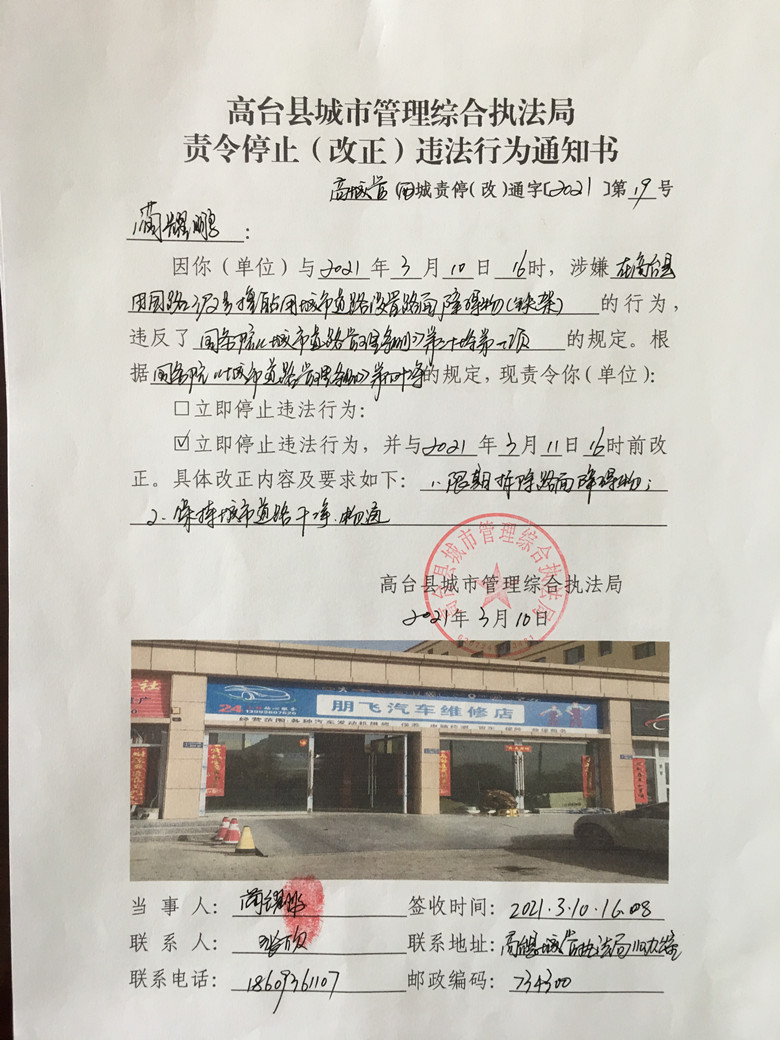 高台县城市管理综合执法局
责令停止（改正）违法行为通知书
高城管 城责停（改）通字[2021]第19号
蔺耀鹏：
因你（单位）与2021年3月10日16时，涉嫌在高台县
用城市道路设置路面障碍物 的行为，
违反了国务院《城市道路管理条例》第二十 的规定。根
据国务院《城市道路管理条例》第四十 的规定，现责令你（单位）：
□立即停止违法行为：
☑立即停止违法行为，并与2021年3月11日16时前改
正。具体改正内容及要求如下：1、限期拆除路面障碍物；
2、保持城市道路干净、畅通
高台县城市管理综合执法局
高台县城市管理综合执法局
2021年3月10日
24
朋飞汽车维修店
经营范围:各种汽车发动机
当事人：蔺耀鹏 签收时间：2021.3.10.16.08
联系人： 联系地址：高台县城管执法局
联系电话：18609361107 邮政编码：734300